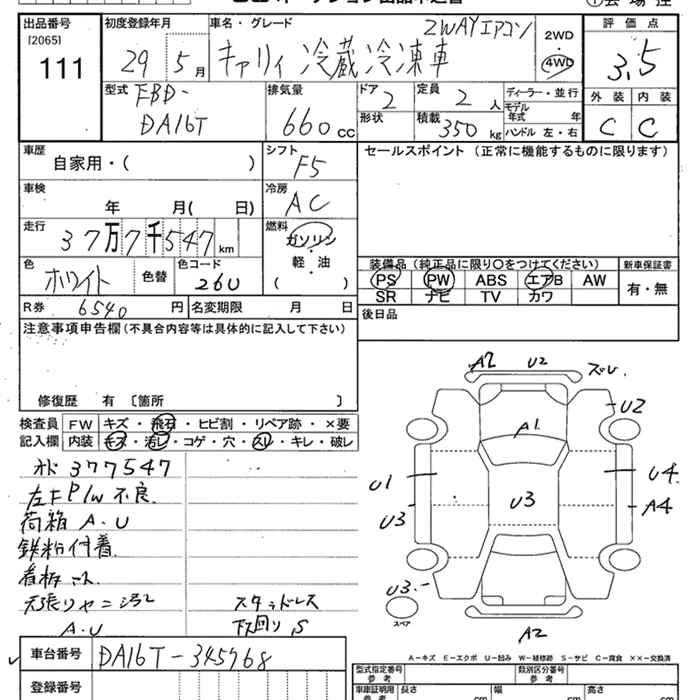 出品番号 初度登録年月 車名・グレード 2WAYエアコン 2WD 評価点
[2065]
111 29 5月 キャリィ 冷蔵冷凍車 4WD 3.5
型式 EBD-DA16T 排気量 660cc ドア 2 定員 2人 ディーラー・並行 外装 内装
形状 積載 350kg モデル年式 年 C C
ハンドル 左・右
車歴 自家用・( ) シフト F5 セールスポイント (正常に機能するものに限ります)
車検 年 月( 日) 冷房 AC
走行 37万7千547km 燃料 ガソリン・軽・油
色 ホワイト 色替 色コード 26U ( )
装備品 (純正品に限り〇をつけてください) 新車保証書
PS PW ABS エアB AW 有・無
SR ナビ TV カワ
R券 6540円 名変期限 月 日 後日品
注意事項申告欄(不具合内容等は具体的に記入して下さい)
修復歴 有 〔箇所 〕
検査員 FW キズ・飛石・ヒビ割・リペア跡・×要
記入欄 内装 キズ・汚レ・コゲ・穴・スレ・キレ・破レ
377547
左F P/W 不良
荷箱 A.U
鉄粉付着
天張りヤニ汚レ スタッドレス
A.U 下回りS
A2 U2 ズレ
U2
A1
U1 U4
U3 U3 A4
U3
スペア
A2
A-キズ E-エクボ U-凹み W-補修跡 S-サビ C-腐食 ××-交換済
車台番号 DA16T-345968 型式指定番号 参考 類別区分番号 参考
登録番号 車庫証明用 参考 長さ cm 幅 cm 高さ cm